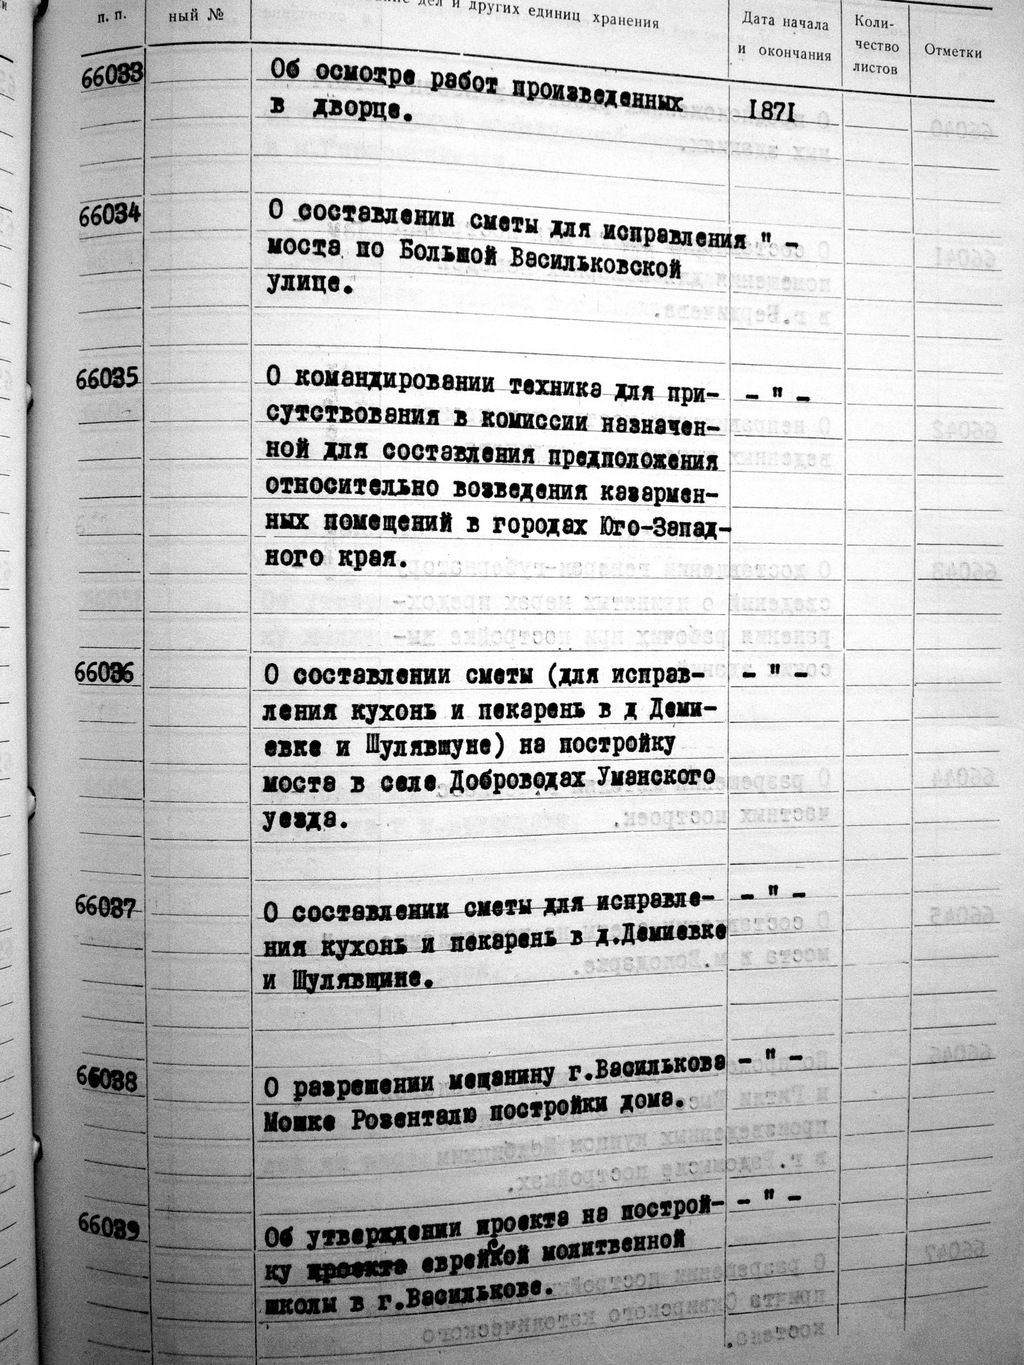 п. п.
ный №
дел и других единиц хранения
Дата начала
и окончания
Коли-
чество
листов
Отметки
66033
Об осмотре работ произведенных
в дворце.
1871
66034
О составлении сметы для исправления " -
моста по Большой Васильковской
улице.
66035
О командировании техника для при- - " -
сутствования в комиссии назначен-
ной для составления предположения
относительно возведения казармен-
ных помещений в городах Юго-Запад-
ного края.
66036
О составлении сметы (для исправ- - " -
ления кухонь и пекарень в д Деми-
евке и Шулявшуне) на постройку
моста в селе Доброводах Уманского
уезда.
66037
О составлении сметы для исправле- - " -
ния кухонь и пекарень в д.Демиевке
и Шулявщине.
66038
О разрешении мещанину г.Василькова - " -
Мошке Розенталю постройки дома.
66039
Об утверждении проекта на построй- - " -
ку проекта еврейской молитвенной
школы в г.Василькове.